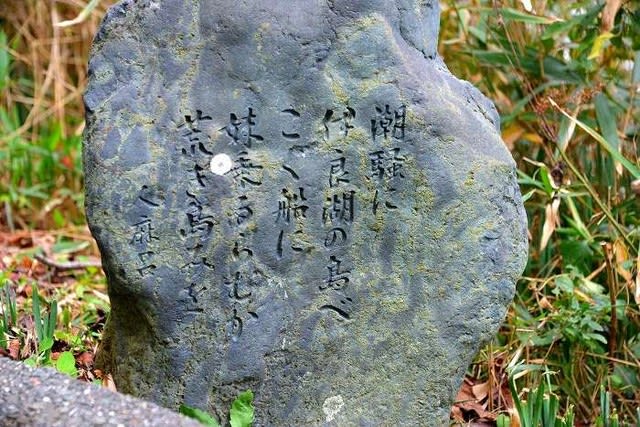 潮騒に
伊良湖の島べ
こぐ船に
妹乗るらむか
荒き島みを
人麻呂